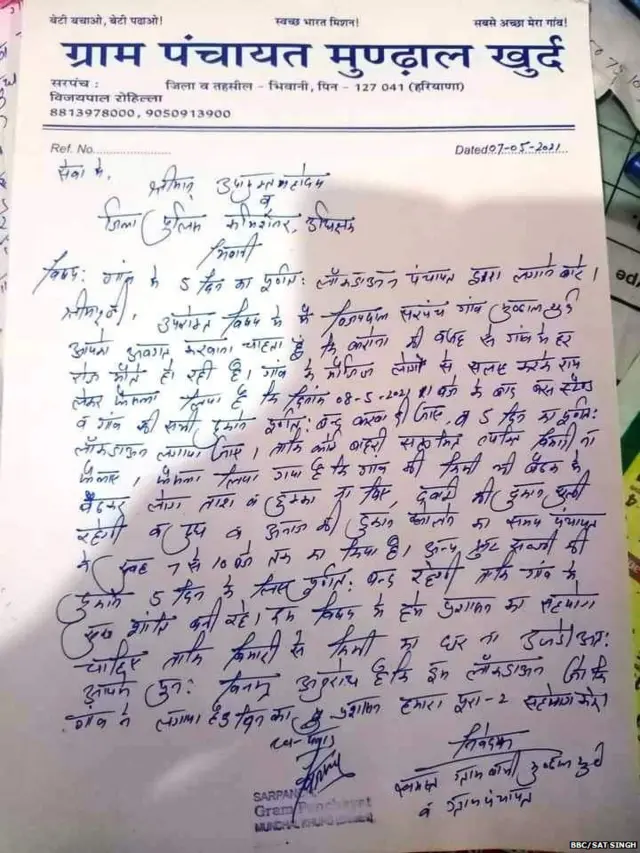 बेटी बचाओ, बेटी पढाओ! स्वच्छ भारत मिशन! सबसे अच्छा मेरा गांव!
ग्राम पंचायत मुण्ढ़ाल खुर्द
सरपंच : जिला व तहसील - भिवानी, पिन - 127 041 (हरियाणा)
विजयपाल रोहिल्ला
8813978000, 9050913900
Ref. No. Dated 07-05-2021
सेवा में,
श्रीमान् उपायुक्त महोदय
व
जिला पुलिस
भिवानी
विषय: गांव में 5 दिन का पूर्णत: लॉकडाऊन पंचायत द्वारा लगाने बारे।
श्रीमान् जी, उपरोक्त विषय में मैं विजयपाल सरपंच गांव मुण्ढाल खुर्द
आपको अवगत करवाना चाहता हूँ कि कोरोना की वजह से गांव में हर
रोज मौतें हो रही है। गांव के मौजिज लोगों से सलाह करके राय
लेकर फैसला लिया है कि दिनांक 08-5-2021 बजे के बाद बस स्टैण्ड
व गांव की सभी दुकानें पूर्णत: बन्द करवा दी जाए, व 5 दिन का पूर्णत:
लॉकडाऊन लगाया जाए। ताकि कोई बाहरी व्यक्ति बिमारी ना
फैलाए। फैसला लिया गया है कि गांव की किसी भी बैठक में
बैठकर लोग ताश व हुक्का ना पिए, दवाई की दुकान खुली
रहेगी व दूध व अनाज की दुकान खोलने का समय पंचायत
ने सुबह 7 से 10 बजे तक का किया है। अन्य सब्जी की
दुकानें 5 दिन के लिए पूर्णत: बन्द रहेगी ताकि गांव में
सुख शांति बनी रहे। इस विषय में हमें प्रशासन का सहयोग
चाहिए ताकि बिमारी से किसी का घर ना उजड़े अत:
आपसे पुन: विनम्र अनुरोध है कि इस लॉकडाऊन जो कि
गांव ने लगाया है 5 दिन का प्रशासन हमारा पूरा-2 सहयोग करे।
निवेदक
समस्त ग्रामवासी मुण्ढाल खुर्द
व ग्राम पंचायत
SARPANCH
Gram Panchayat
MUNDHAL KHURD
BBC/SAT SINGH